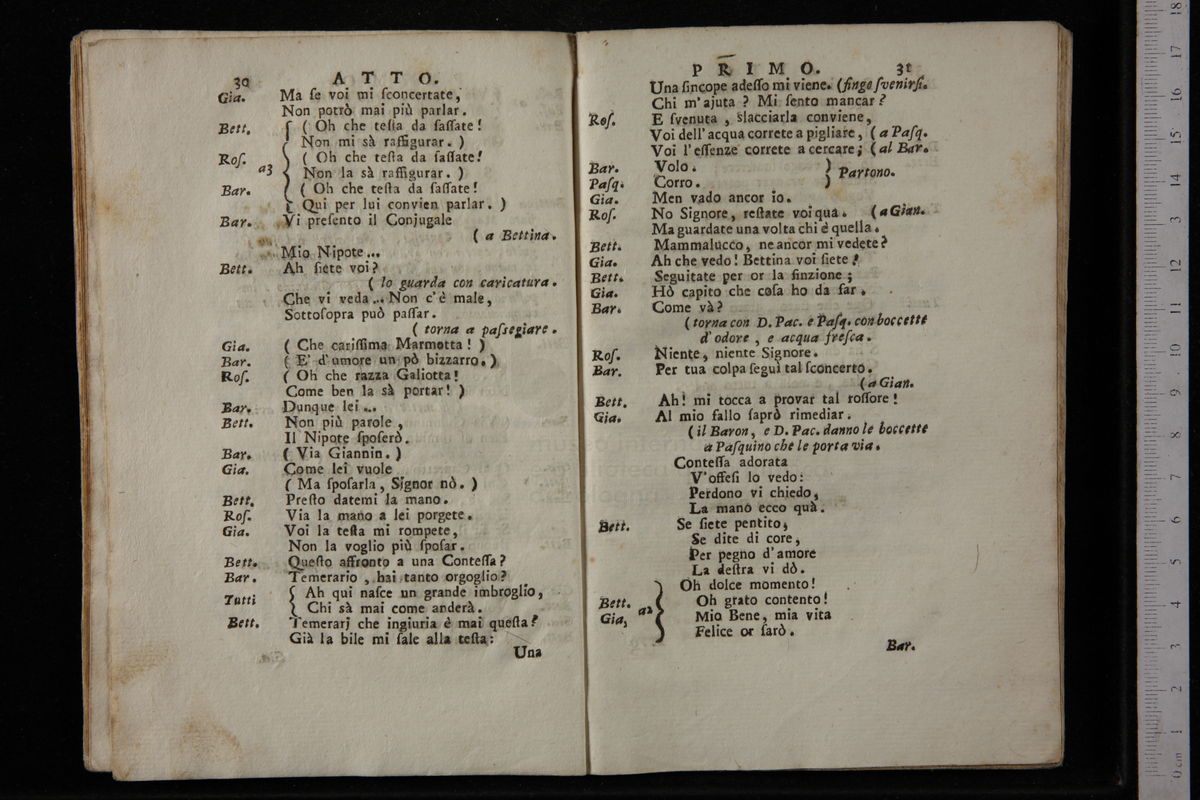 30 ATTO.
Gia. Ma ſe voi mi ſconcertate,
Non potrò mai più parlar.
Bett. ( Oh che teſta da ſaſſate!
Non mi sà raffigurar. )
Roſ. ( Oh che teſta da ſaſſate!
a3 Non la sà raffigurar. )
Bar. ( Oh che teſta da ſaſſate!
Qui per lui convien parlar. )
Bar. Vi preſento il Conjugale
( a Bettina.
Mio Nipote...
Bett. Ah ſiete voi?
( lo guarda con caricatura.
Che vi veda... Non c'è male,
Sottoſopra può paſſar.
( torna a paſſegiare.
Gia. ( Che cariſſima Marmotta! )
Bar. ( E' d'amore un pò bizzarro. )
Roſ. ( Oh che razza Galiotta!
Come ben la sà portar! )
Bar. Dunque lei...
Bett. Non più parole,
Il Nipote ſpoſerò.
Bar. ( Via Giannin. )
Gia. Come lei vuole
( Ma ſpoſarla, Signor nò. )
Bett. Preſto datemi la mano.
Roſ. Via la mano a lei porgete.
Gia. Voi la teſta mi rompete,
Non la voglio più ſpoſar.
Bett. Queſto affronto a una Conteſſa?
Bar. Temerario, hai tanto orgoglio?
Tutti Ah qui naſce un grande imbroglio,
Chi sà mai come anderà.
Bett. Temerarj che ingiuria è mai queſta?
Già la bile mi ſale alla teſta:
Una
PRIMO. 31
Una ſincope adeſſo mi viene. (finge ſvenirſi.
Chi m'ajuta? Mi ſento mancar?
Roſ. E ſvenuta, slacciarla conviene,
Voi dell'acqua correte a pigliare, (a Paſq.
Voi l'eſſenze correte a cercare; (al Bar.
Bar. Volo. } Partono.
Paſq. Corro. }
Gia. Men vado ancor io.
Roſ. No Signore, reſtate voi qua. (a Gian.
Ma guardate una volta chi è quella.
Bett. Mammalucco, ne ancor mi vedete?
Gia. Ah che vedo! Bettina voi ſiete!
Bett. Seguitate per or la finzione;
Gia. Hò capito che coſa ho da far.
Bar. Come và?
(torna con D. Pac. e Paſq. con boccette
d'odore, e acqua freſca.
Roſ. Niente, niente Signore.
Bar. Per tua colpa ſeguì tal ſconcerto.
(a Gian.
Bett. Ah! mi tocca a provar tal roſſore!
Gia. Al mio fallo ſaprò rimediar.
(il Baron, e D. Pac. danno le boccette
a Paſquino che le porta via.
Conteſſa adorata
V'offeſi lo vedo:
Perdono vi chiedo,
La mano ecco quà.
Bett. Se ſiete pentito,
Se dite di core,
Per pegno d'amore
La deſtra vi dò.
Oh dolce momento!
Bett. Oh grato contento!
Gia, a2 Mio Bene, mia vita
Felice or ſarò.
Bar.